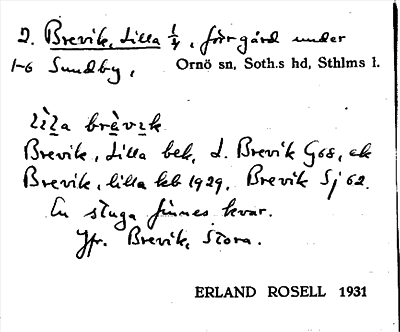 D. Brevik, Lilla 1/4, förr gård under
1-6 Sundby, Ornö sn, Soth.s hd, Sthlms l.
lìla brèvɪk
Brevik, Lilla bek, L. Brevik G68, ek
Brevik, lilla kb 1929, Brevik Sj 62.
En stuga finnes kvar.
Jfr. Brevik, Stora.
ERLAND ROSELL 1931